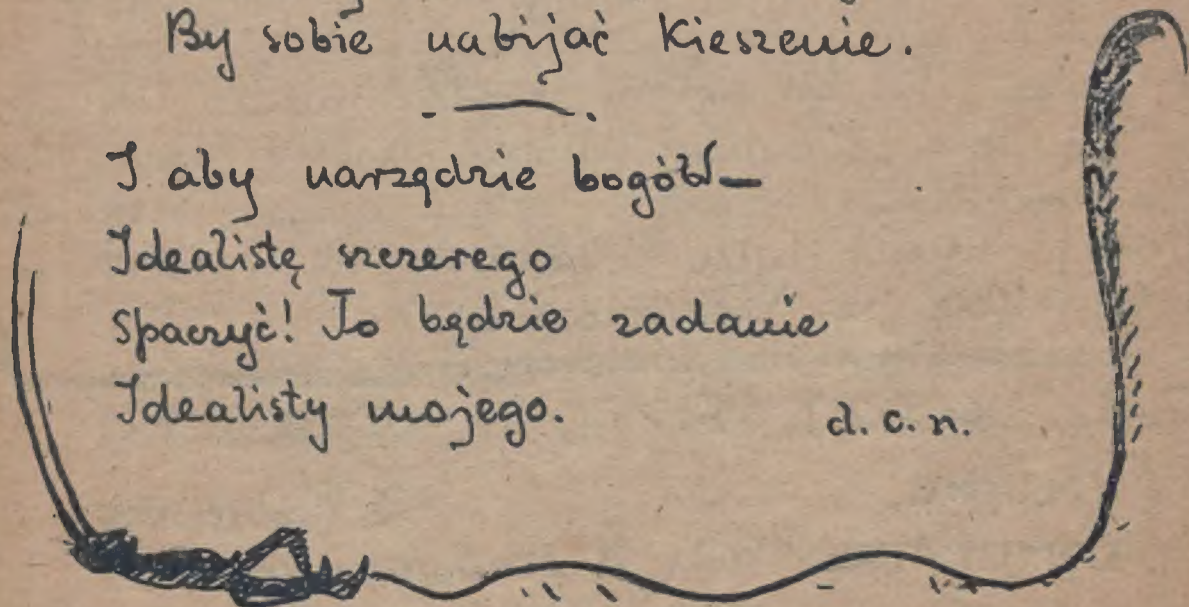 By sobie nabijać kieszenie.
I aby narzędzie bogów—
Idealistę szczerego
Spaczyć! To będzie zadanie
Idealisty mojego.
d. c. n.